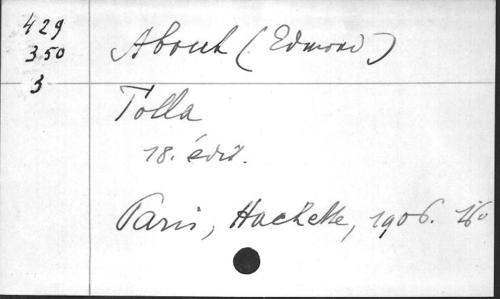 429
350
3
About (Edmond)
Tolla
18. édit.
Paris, Hachette, 1906. 16º